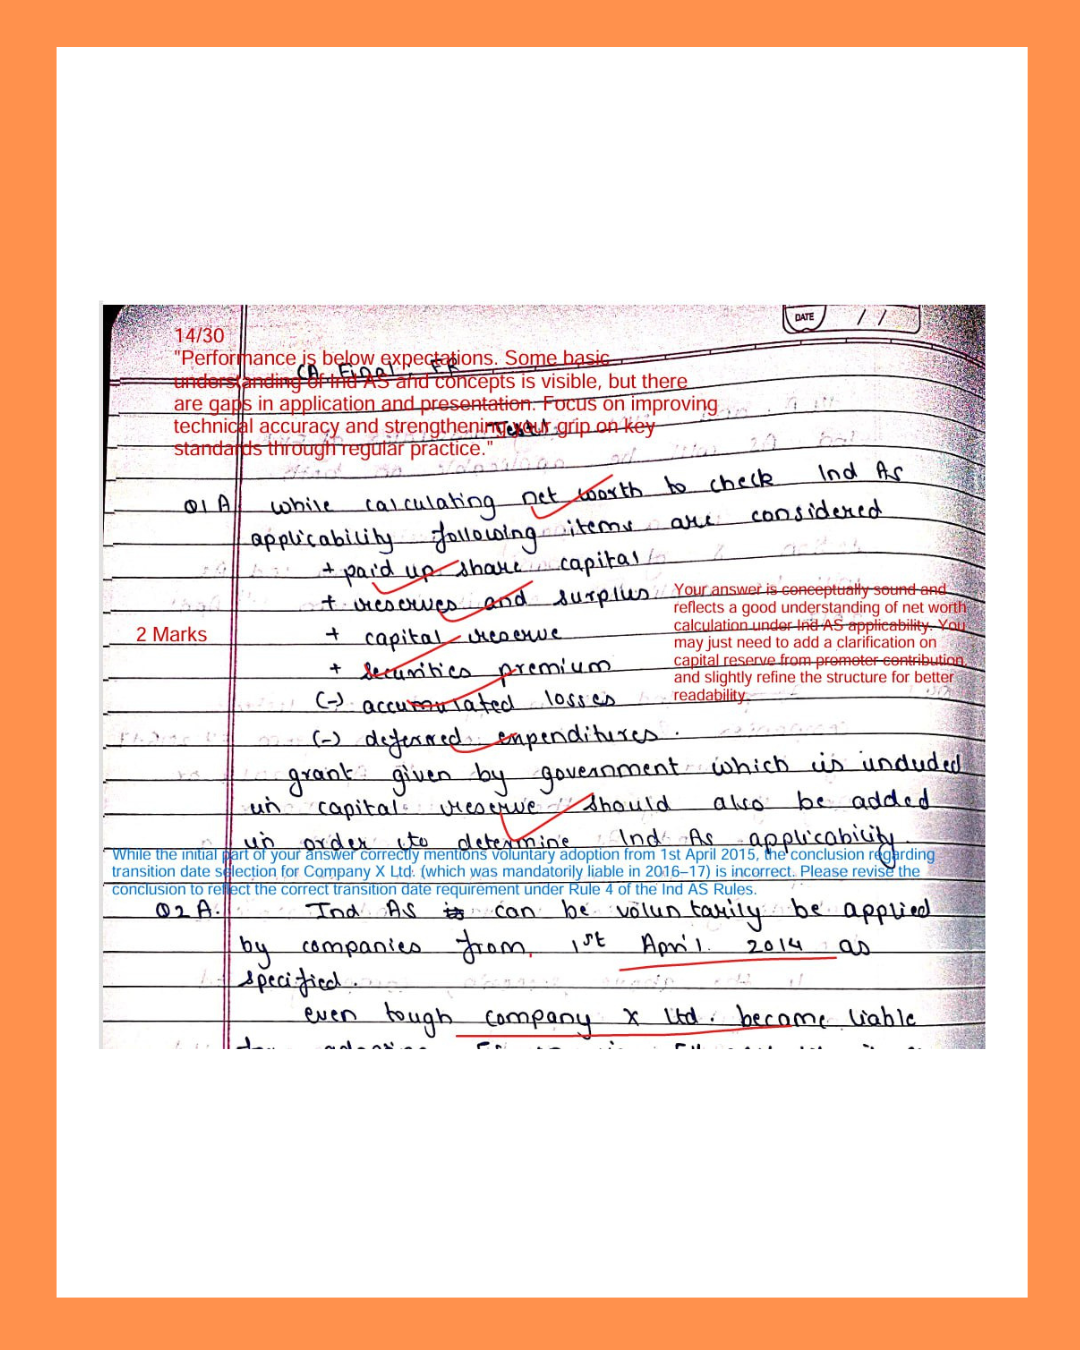 DATE
/ /
14/30
"Performance is below expectations. Some basic
understanding of Ind AS and concepts is visible, but there
are gaps in application and presentation. Focus on improving
technical accuracy and strengthening your grip on key
standards through regular practice."
CA Final : FR
Test
Q1 A while calculating net worth to check Ind As
applicability following items are considered
+ paid up share capital
+ reserves and surplus
+ capital reserve
+ securities premium
(-) accumulated losses
(-) deferred expenditures.
2 Marks
Your answer is conceptually sound and
reflects a good understanding of net worth
calculation under Ind AS applicability. You
may just need to add a clarification on
capital reserve from promoter contribution,
and slightly refine the structure for better
readability.
grant given by government which is included
in capital reserve should also be added
in order to determine Ind As applicability.
While the initial part of your answer correctly mentions voluntary adoption from 1st April 2015, the conclusion regarding
transition date selection for Company X Ltd. (which was mandatorily liable in 2016–17) is incorrect. Please revise the
conclusion to reflect the correct transition date requirement under Rule 4 of the Ind AS Rules.
Q2 A. Ind AS is can be voluntarily be applied
by companies from 1st April 2014 as
specified.
even tough company X Ltd. became liable